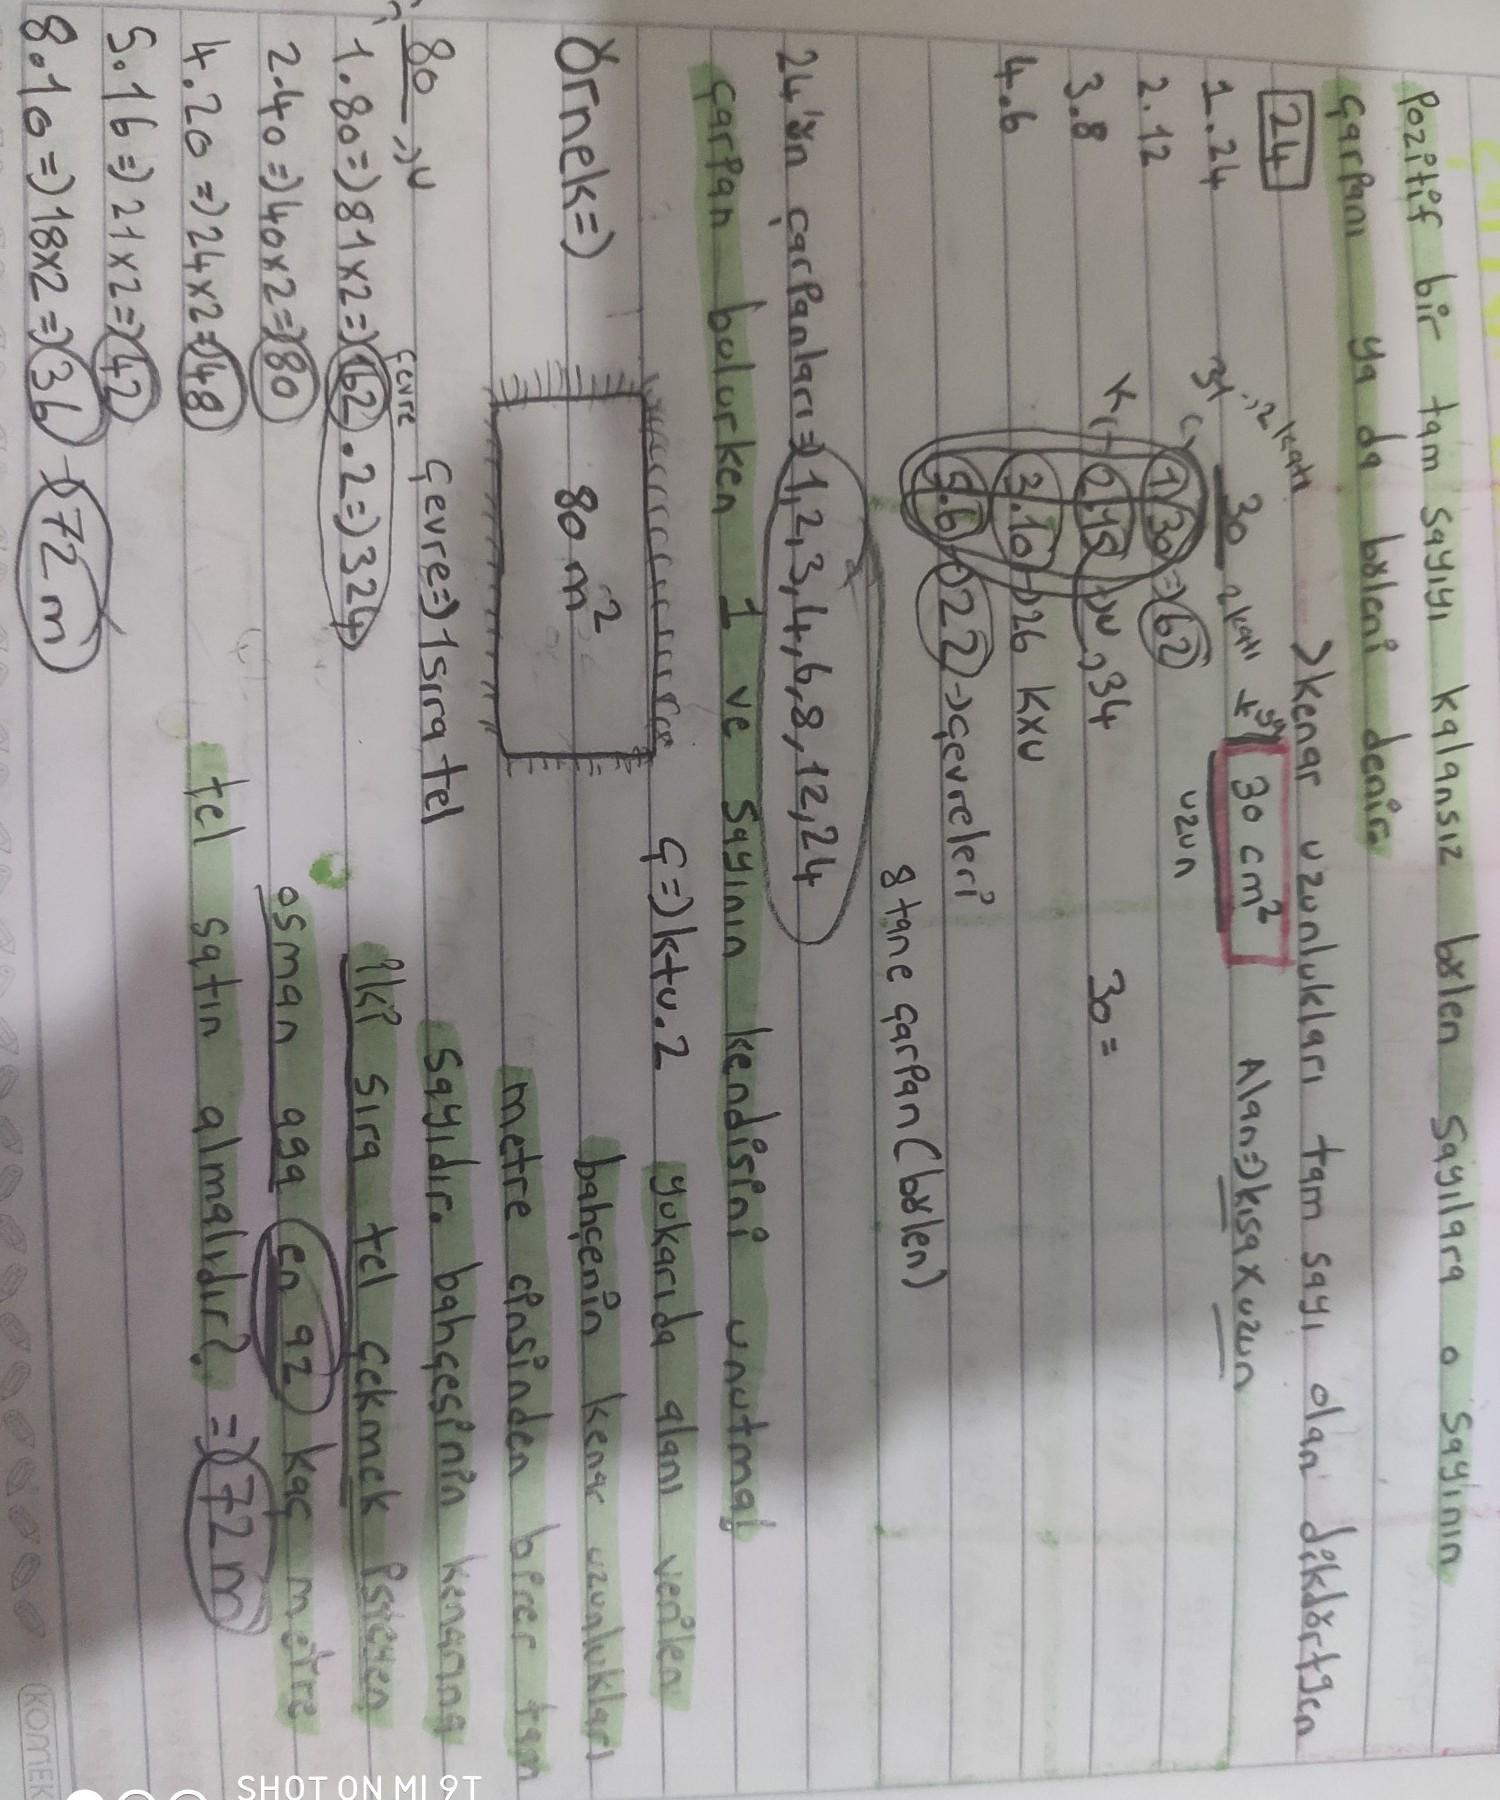 Pozitif bir tam sayıyı kalansız bölen sayılara o sayının
çarpanı ya da böleni denir.
24
1.24
2.12
3.8
4.6
>kenar uzunlukları tam sayı olan dikdörtgen
2 katı
31
30
2 katı
30 cm²
Alan=>kısa x uzun
uzun
1.30=>62
K
2.15
U
34
30=
3.10
26
KxU
5.6
22->çevreleri
8 tane çarpan(bölen)
24'ün çarpanları=>1,2,3,4,6,8,12,24
çarpan bulurken 1 ve sayının kendisini unutma!
Örnek=)
80 m²
Ç=)k+u.2
yukarıda alanı verilen
bahçenin kenar uzunlukları
metre cinsinden birer tam
sayıdır. bahçesinin kenarına
iki sıra tel çekmek isteyen
osman aga en az kaç metre
tel satın almalıdır? =)72m
80
U
çevre
Çevre=)1sıra tel
1.80=)81x2=)162.2=)324
2.40=)40x2=)80
4.20=)24x2=)48
5.16=)21x2=)42
8.10=)18x2=)36
72 m
KOMEK
SHOT ON MI 9T